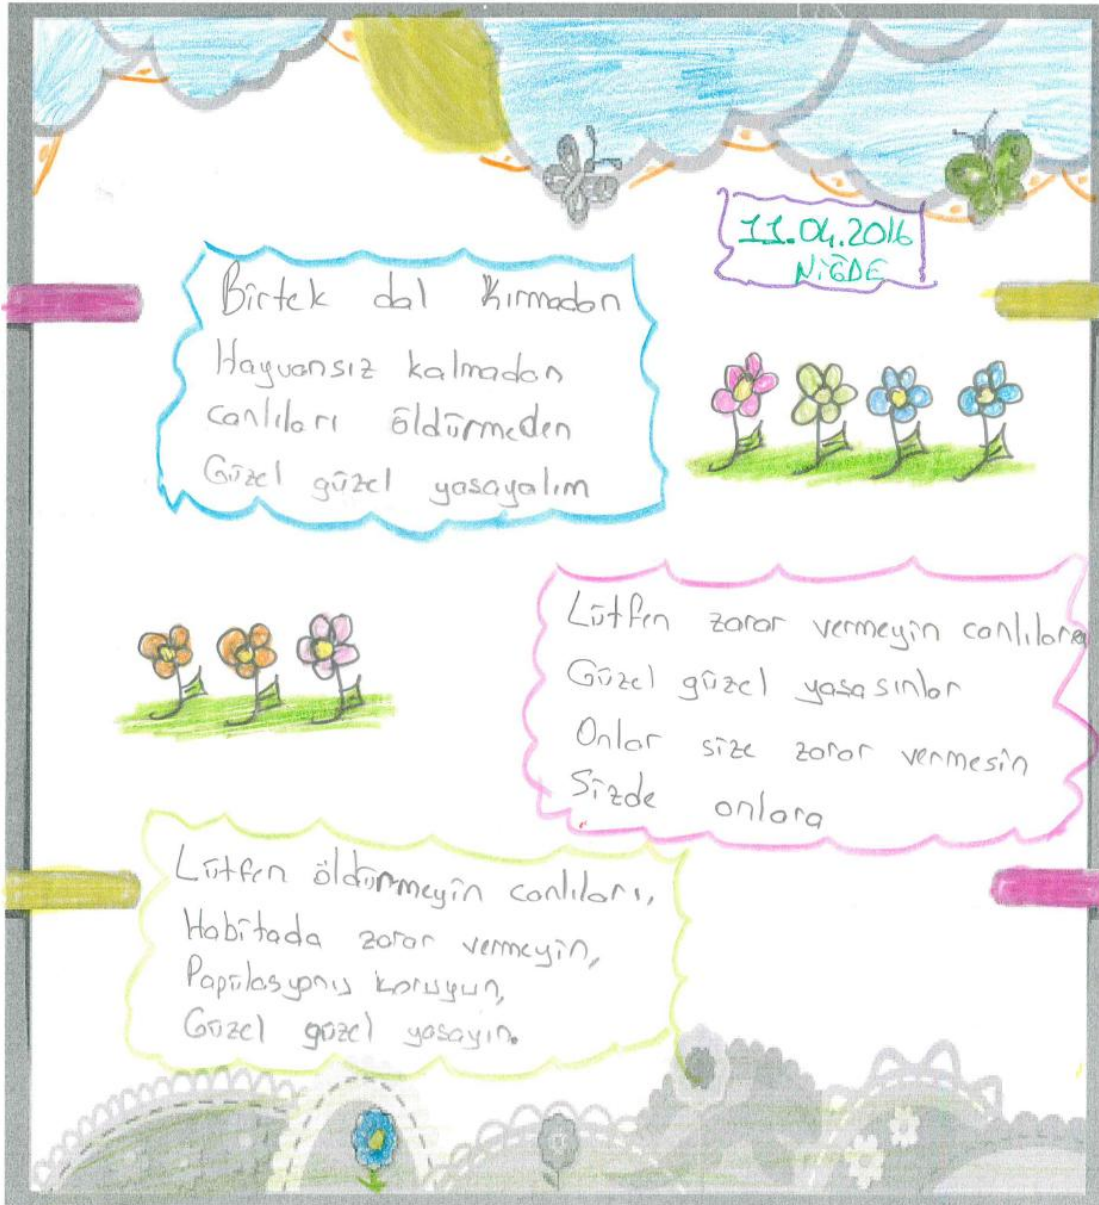 11.04.2016
NİĞDE
Birtek dal kırmadan
Hayvansız kalmadan
canlıları öldürmeden
Güzel güzel yasayalım
Lütfen zarar vermeyin canlılara
Güzel güzel yasasınlar
Onlar size zarar vermesin
Sizde onlara
Lütfen öldürmeyin canlıları,
Habitada zarar vermeyin,
koruyun,
Güzel güzel yasayın.